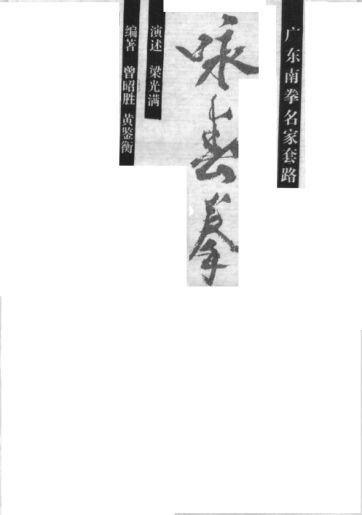 广东南拳名家套路
咏春拳
演述 梁光满
编著 曾昭胜 黄鉴衡